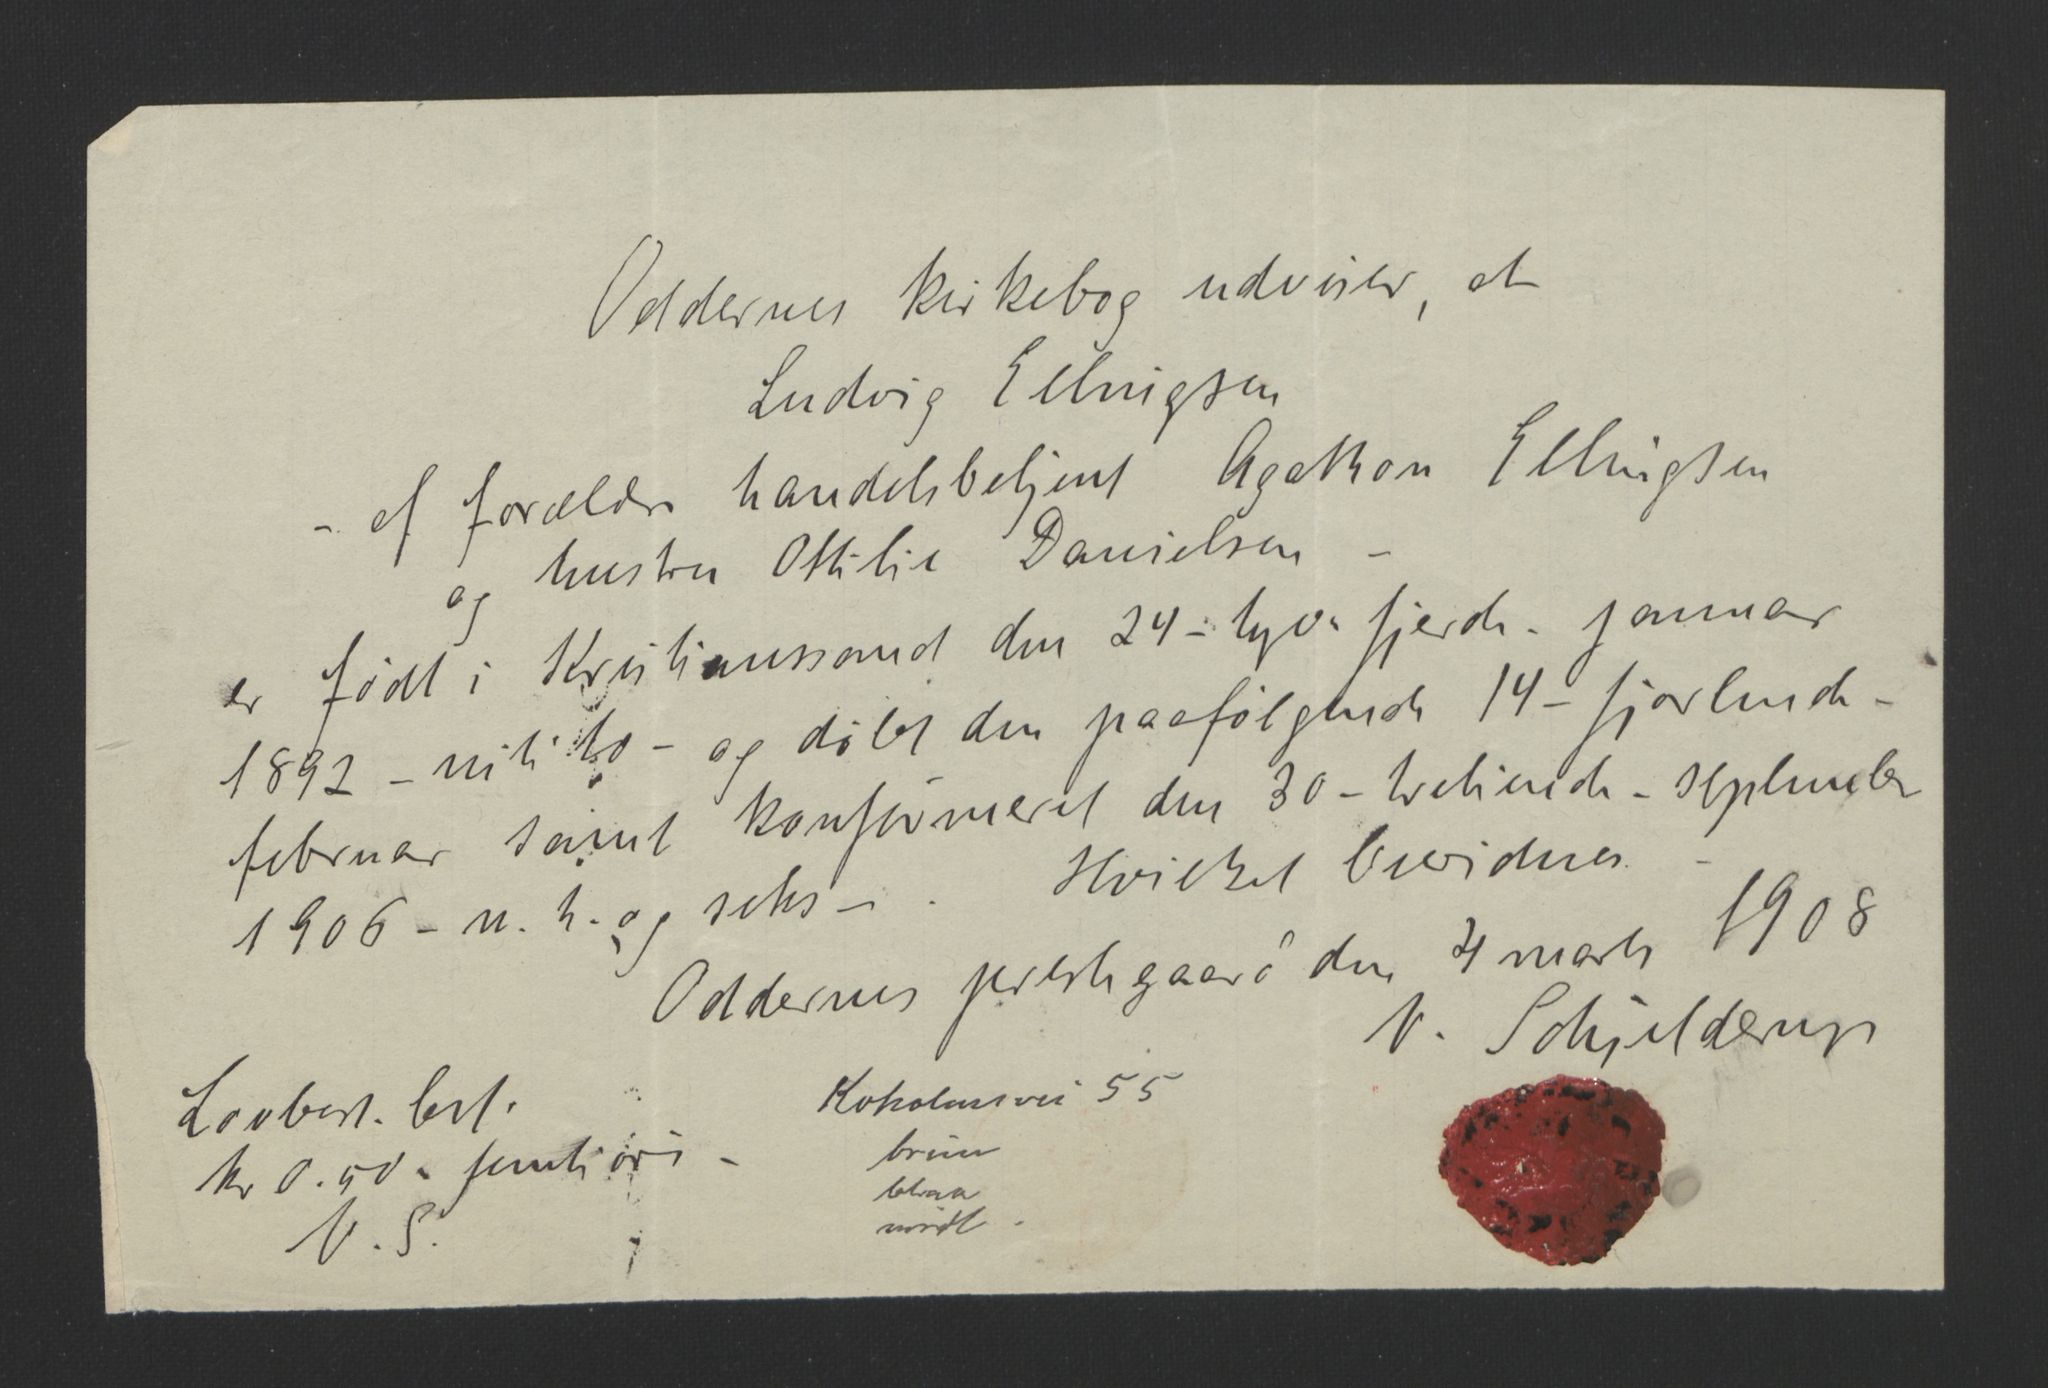 Oddernes kirkebog udviser, at
Ludvig Ellingsen
- af forældre handelsbetjent Agathon Ellingsen
og hustru Ottilie Danielsen -
er født i Kristianssand den 24 - tyvefjerde - januar
1892 - nitito - og døbt den paafølgende 14 - fjortende -
februar samt konfirmeret den 30 - tretiende - september
1906 - n. h. og seks - . Hvilket bevidnes -
Oddernes prestegaard den 4 marts 1908
V. Schjelderup
Lovbest. bet.
kr 0.50 - femti øre -
V. S.
55
brun
blaa